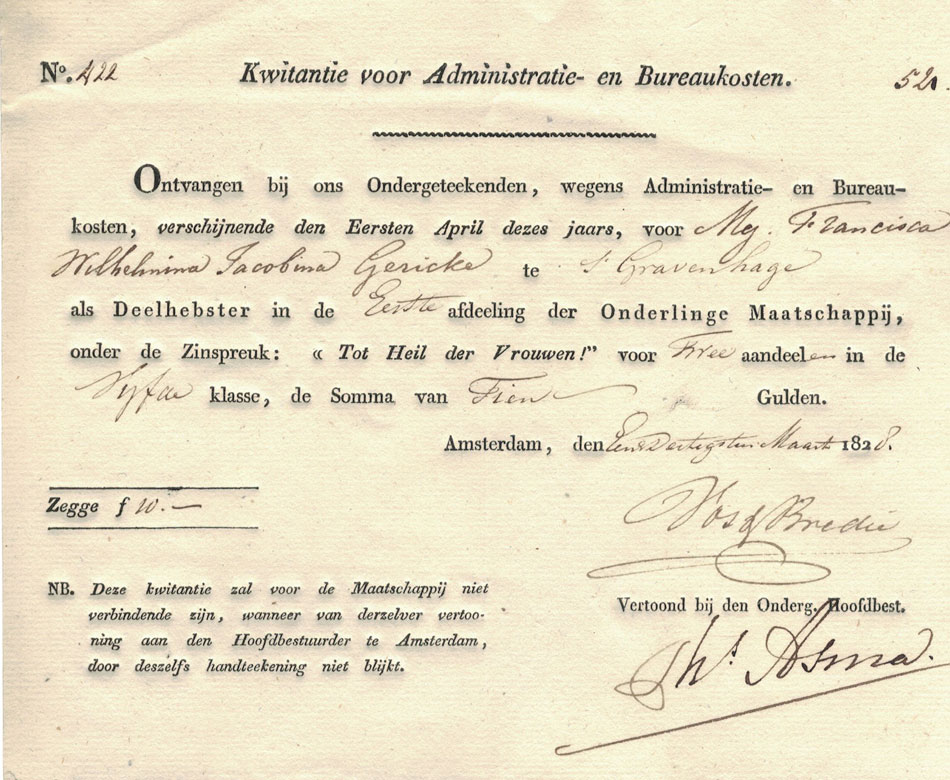 No. 422 Kwitantie voor Administratie- en Bureaukosten. 521.
Ontvangen bij ons Ondergeteekenden, wegens Administratie- en Bureau-
kosten, verschijnende den Eersten April dezes jaars, voor Mej. Francisca
Wilhelmina Jacobina Gericke te s' Gravenhage
als Deelhebster in de Eerste afdeeling der Onderlinge Maatschappij,
onder de Zinspreuk: « Tot Heil der Vrouwen!" voor Twee aandeelen in de
Vyfde klasse, de Somma van Tien Gulden.
Amsterdam, den Een & Dertigsten Maart 1828.
Zegge f 10.—
Vos & Bredie
NB. Deze kwitantie zal voor de Maatschappij niet
verbindende zijn, wanneer van derzelver vertoo-
ning aan den Hoofdbestuurder te Amsterdam,
door deszelfs handteekening niet blijkt.
Vertoond bij den Onderg. Hoofdbest.
Asma.